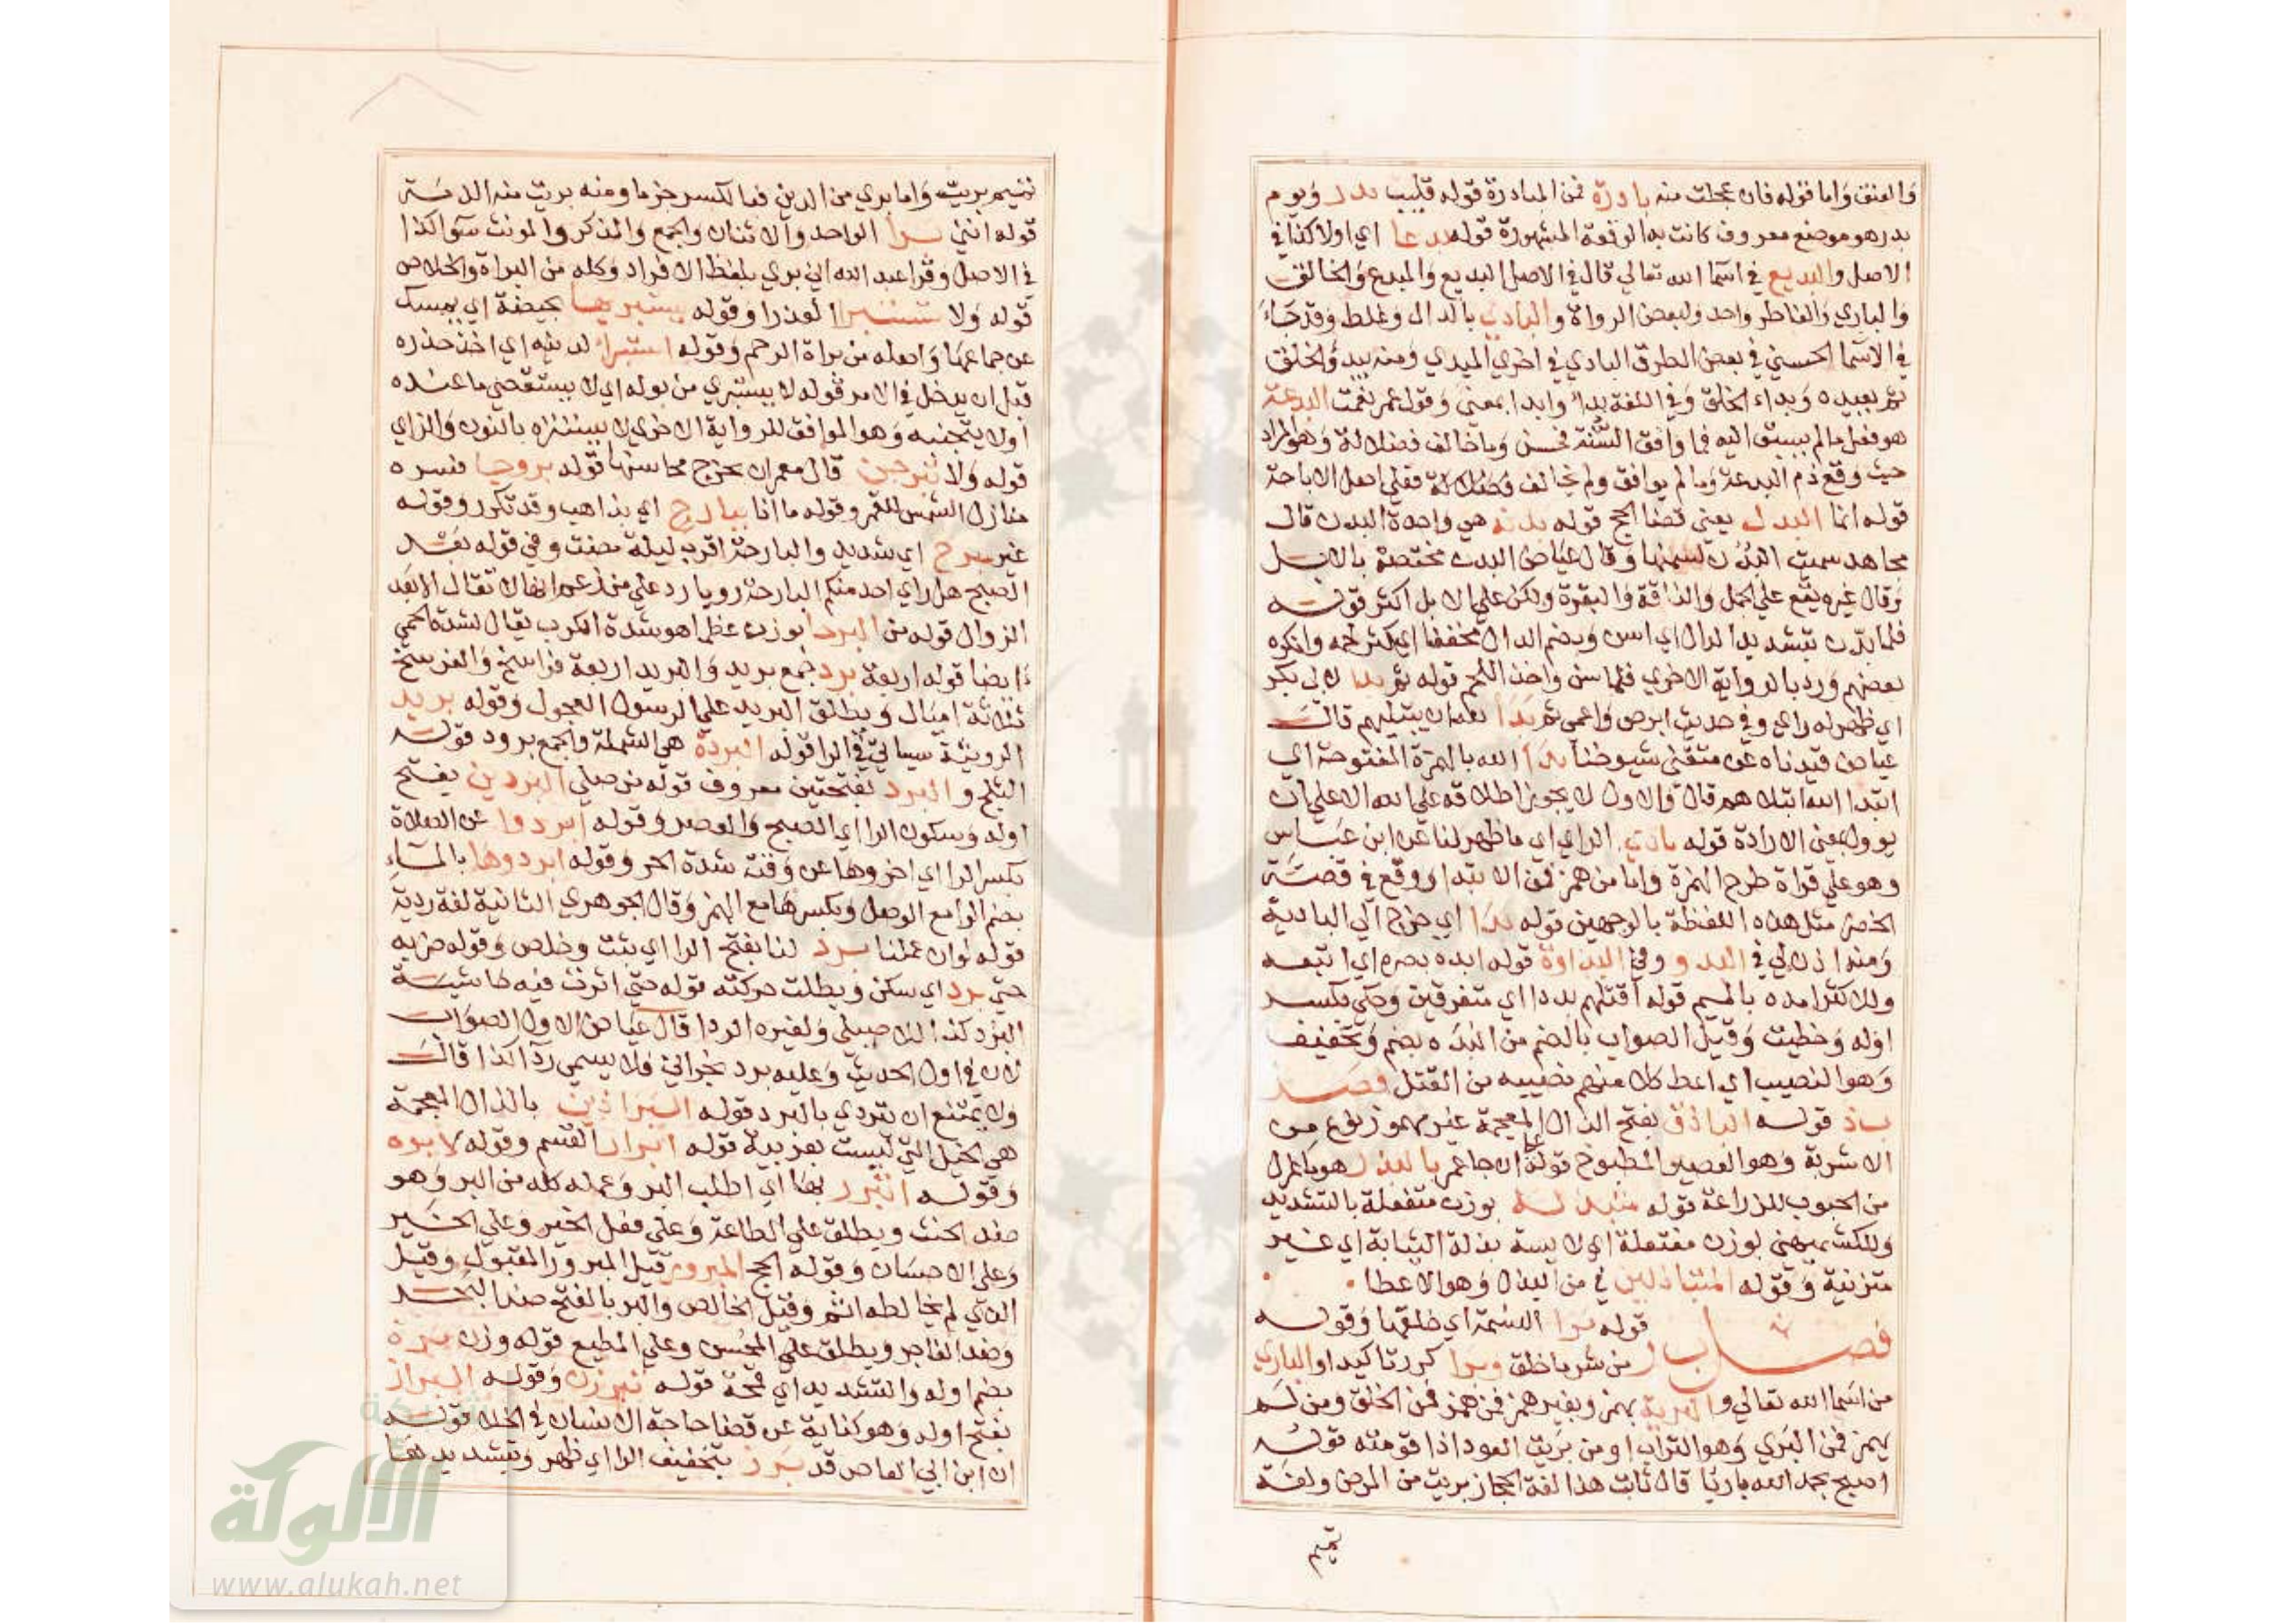 والعنق واما قوله فان عجلت منه بادرة فمن المبادرة قوله قليب بدر ويوم
بدر هو موضع معروف كانت به الوقعة المشهورة قوله بدعا اي اولا كذا في
الاصل والبديع في اسما الله تعالي قال في الاصل البديع والمبدع والخالق
والباري والفاطر واحد ولبعض الرواة والبادي بالدال وغلط وقد جاء
في الاسما الحسني في بعض الطرق البادي في اخري المبدي ومنه يبدؤ الخلق
ثم يعيده وبداء الخلق وفي اللغة بدا وابدا بمعني وقول عمر نعمت البدعة
هو فعل مالم يسبق اليه فما وافق السنة فحسن وما خالف فضلالة وهو المراد
حيث وقع ذم البدعة وما لم يوافق ولم يخالف فعلي اصل الاباحة
قوله انما البدل يعني قضا الحج قوله بدنة هي واحدة البدن قال
مجاهد سميت البدن لسمنها وقال عياض البدن مختصة بالابل
وقال غيره يقع علي الجمل والناقة والبقرة ولكن علي الابل اكثر قوله
فلما بدن بتشديد الدال اي اسن وبضم الدال مخففا اي كثر لحمه وانكره
بعضهم ورد بالرواية الاخري فلما سن واخذ اللحم قوله ثم بدا لابي بكر
اي ظهر له راي وفي حديث ابرص واعمي ثم بدا لله ان يبتليهم قال
عياض قيدناه عن متقني شيوخنا بدأ الله بالهمزة المفتوحة اي
ابتدا الله ابتلاهم قال والاول لا يجوز اطلاقه علي الله الا علي ان
يوول بمعني الارادة قوله بادي الراي اي ما ظهر لنا عن ابن عباس
وهو علي قراة طرح الهمزة واما من همز فمن الابتدا ووقع في قصة
الخضر مثل هذه اللفظة بالوجهين قوله بدا اي خرج الي البادية
ومنه اذن لي في البدو وفي البداوة قوله ابده بصره اي اتبعه
وللاكثر امده بالميم قوله اقتلهم بددا اي متفرقين وحكي بكسر
اوله وخطيت وقيل الصواب بالضم من البده بضم وتخفيف
وهو النصيب اي اعط كلا منهم نصيبه من القتل فصل
ب ذ قوله الباذق بفتح الذال المعجمة غير مهموز نوع من
الاشربة وهو العصير المطبوخ قوله ان جا عمر بالبذر هو ما عزل
من الحبوب للزراعة قوله متبذلة بوزن متفعلة بالتشديد
وللكشميهني بوزن مفتعلة اي لابسة بذلة الثيابة اي غير
متزنية وقوله المتباذلين في من البذل وهو الاعطا
فصل ب ر قوله برا النسمة اي خلقها وقوله
من شر ما خلق وبرا كررتاكيدا والباري
من اسما الله تعالي والبرية بهمز وبغير همز فمن همز فمن الخلق ومن لم
يهمز فمن البري وهو التراب او من بريت العود اذا قومته قوله
اصبح بحمد الله باريا قال ثابت هذا لغة الحجاز بريت من المرض ولغة
تميم
تميم بريت واما بري من الدين فبالكسر جزما ومنه بريت منه الذمة
قوله انني برأ الواحد والاثنان والجمع والمذكر والمونث سوا كذا
في الاصل وقرا عبد الله اني بري بلفظ الافراد وكله من البراة والخلاص
قوله ولا تستبرا العذرا وقوله يستبريها بحيضة اي يمسك
عن جماعها واصله من براة الرحم وقوله استبرا لدينه اي اخذ حذره
قبل ان يدخل في الامر قوله لا يستبري من بوله اي لا يستقصي ما عنده
اولا يتجنبه وهو الموافق للرواية الاخري لا يستنزه بالنون والزاي
قوله ولا تبرجن قال معمر ان تخرج محاسنها قوله بروجا فسره
منازل الشمس للقمر وقوله ما انا ببارح اي بذاهب وقد تكرر وقوله
غير مبرح اي شديد والبارحة اقرب ليلة مضت وفي قوله بعد
الصبح هل راي احد منكم البارحة رويا رد علي من زعم انها لا تقال الا بعد
الزوال قوله من البرحا بوزن عظما هو شدة الكرب يقال لشدة الحمي
ايضا قوله اربعة برد جمع بريد والبريد اربعة فراسخ والفرسخ
ثلاثة اميال ويطلق البريد علي الرسول العجول وقوله بريد
الرويثة سياتي في الرا قوله البردة هي الشملة والجمع برود قوله
الثلج والبرد بفتحتين معروف قوله من صلي البردين بفتح
اوله وسكون الرا اي الصبح والعصر وقوله ابردوا عن الصلاة
بكسر الرا اي اخروها عن وقت شدة الحر وقوله ابردوها بالماء
بضم الرا مع الوصل وبكسرها مع الهمز وقال الجوهري الثانية لغة ردية
قوله لو ان عملنا برد لنا بفتح الرا اي ثبت وخلص وقوله ضربه
حتي برد اي سكن وبطلت حركته قوله حتي اثرت فيه حاشية
البرد كذا للاصيلي ولغيره الردا قال عياض الاول الصواب
لان في اول الحديث وعليه برد نجراني فلا يسمي ردآ كذا قال
ولا يمتنع ان تردي بالبرد قوله البراذين بالذال المعجمة
هي الخيل التي ليست بعربية قوله ابرار القسم وقوله لابره
وقوله البر بها اي اطلب البر وعمله كله من البر وهو
ضد الحنث ويطلق علي الطاعة وعلي فعل الخير وعلي الخير
وعلي الاحسان وقوله الحج المبرور قيل المبرور المقبول وقيل
الذي لم يخالطه اثم وقيل الخالص والبر بالفتح ضد البحر
وضد الفاجر ويطلق علي المحسن وعلي المطيع قوله وزن برة
بضم اوله والتشديد اي قمحة قوله تبرزن وقوله البراز
بفتح اوله وهو كناية عن قضا حاجة الانسان في الخلا قوله
ان ابن ابي العاص قد برز بتخفيف الرا اي ظهر وبتشديدها
شبكة
الألوكة
www.alukah.net